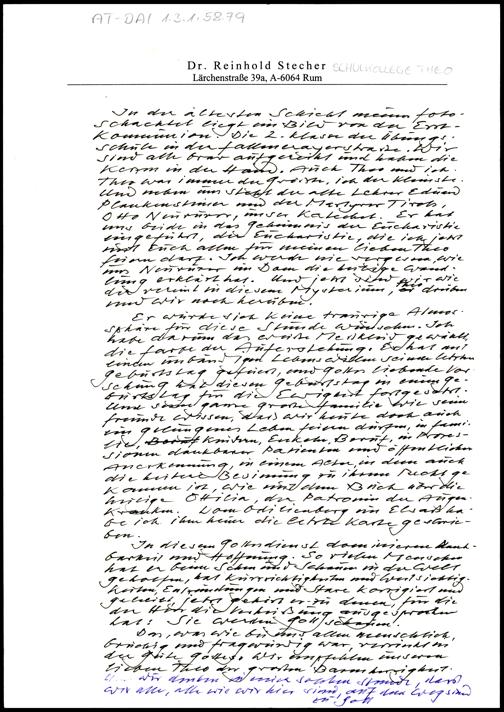 AT-DAI 1.3.1.58.79
Dr. Reinhold Stecher SCHULKOLLEGE THEO
Lärchenstraße 39a, A-6064 Rum
In der ältesten Schicht meiner Foto-
schachtel liegt ein Bild von der Erst-
kommunion. Die 2. Klasse der Übungs-
schule in der Fallmerayerstraße. Wir
sind alle brav aufgereiht und haben die
Kerzen in der Hand. Auch Theo und ich.
Theo war immer der Größte, ich der Kleinste.
Und neben uns steht der alte Lehrer Eduard
Plankensteiner und der Martyrer Tirols,
Otto Neururer, unser Katechet. Er hat
uns beide in das Geheimnis der Eucharistie
eingeführt, die Eucharistie, die ich jetzt
mit Euch allen für meinen lieben Theo
feiern darf. Ich werde nie vergessen, wie
uns Neururer im Dom die heilige Wand-
lung erklärt hat. Und jetzt sind wir wie
die vereint in diesem Mysterium, Theo drüben
und wir noch herüben.
Er würde sich keine traurige Atmos-
phäre für diese Stunde wünschen. Ich
habe darum das weiße Messkleid gewählt,
die Farbe der Auferstehung. Er hat mit
einem unbändigen Lebenswillen seinen letzten
Geburtstag gefeiert, und Gottes liebende Vor-
sehung hat diesen Geburtstag in einen Ge-
burtstag für die Ewigkeit fortgesetzt.
Und seine ganze große Familie wie seine
Freunde wissen, dass wir heute doch auch
ein gelungenes Leben feiern dürfen, in Fami-
lie, Kindern, Enkeln, Beruf, in Profes-
sionen dankbarer Patienten und öffentlicher
Anerkennung, in einem Alter, in dem auch
die heitere Besinnung zu ihrem Recht ge-
kommen ist, wie mit dem Buch über die
heilige Ottilia, der Patronin der Augen-
kranken. Vom Odilienberg im Elsaß ha-
be ich ihm heuer die letzte Karte geschrie-
ben.
In diesem Gottesdienst dominieren Dank-
barkeit und Hoffnung. So vielen Menschen
hat er beim Sehen und Schauen in die Welt
geholfen, hat Kurzsichtigkeiten und Weitsichtig-
keiten, Entzündungen und Stare korrigiert und
geheilt, jetzt gehört er zu denen, für die
der Herr die Verheißung ausgesprochen
hat: Sie werden Gott schauen.
Das, was wie bei uns allen menschlich,
brüchig und fragwürdig war, verrinnt in
der Güte Gottes. Wir empfehlen unseren
lieben Theo der großen Barmherzigkeit.
U... wir denken in einer solchen Stunde, dass
wir alle, alle wie wir hier sind, auf dem Weg sind
zu Gott